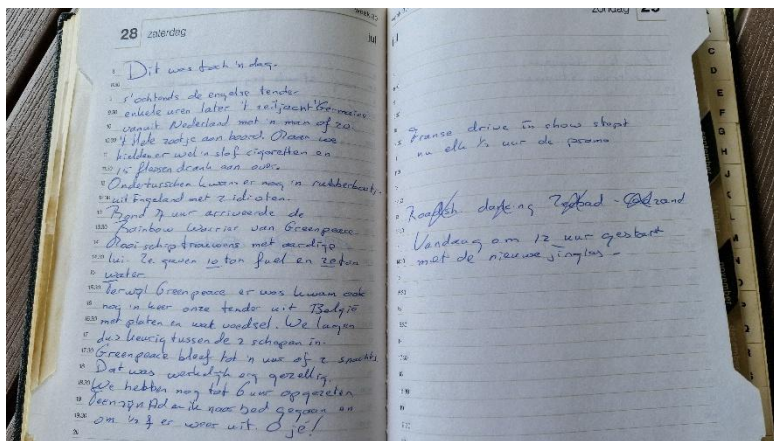 28 zaterdag
jul
Dit was toch 'n dag.
s'ochtends de engelse tender
enkele uren later 't zeiljacht
vanuit Nederland met 'n man of 20.
't Hele zootje aan boord. Maar we
hielden er wel 'n slof cigaretten en
15 flessen drank aan over.
Ondertusschen kwam er nog 'n rubberboot
uit Engeland met 2 idioten.
Rond 4 uur arriveerde de
Rainbow Warrior van Greenpeace
Mooi schip trouwens met aardige
lui. Ze gaven 10 ton fuel en 20 ton
water.
Terwijl Greenpeace er was kwam ook
nog 'n keer onze tender uit België
met platen en wat voedsel. We lagen
dus keurig tussen de 2 schepen in.
Greenpeace bleef tot 'n uur of 2 s'nachts
Dat was werkelijk erg gezellig.
We hebben nog tot 6 uur opgezeten
Toen zijn Ad en ik naar bed gegaan en
om 'n er weer uit. O jé!
zondag 29
Franse drive in show stopt
nu elk ½ uur de promo
dancing - Cadzand
Vandaag om 12 uur gestart
met de nieuwe jingles.
C
D
E
F
G
H